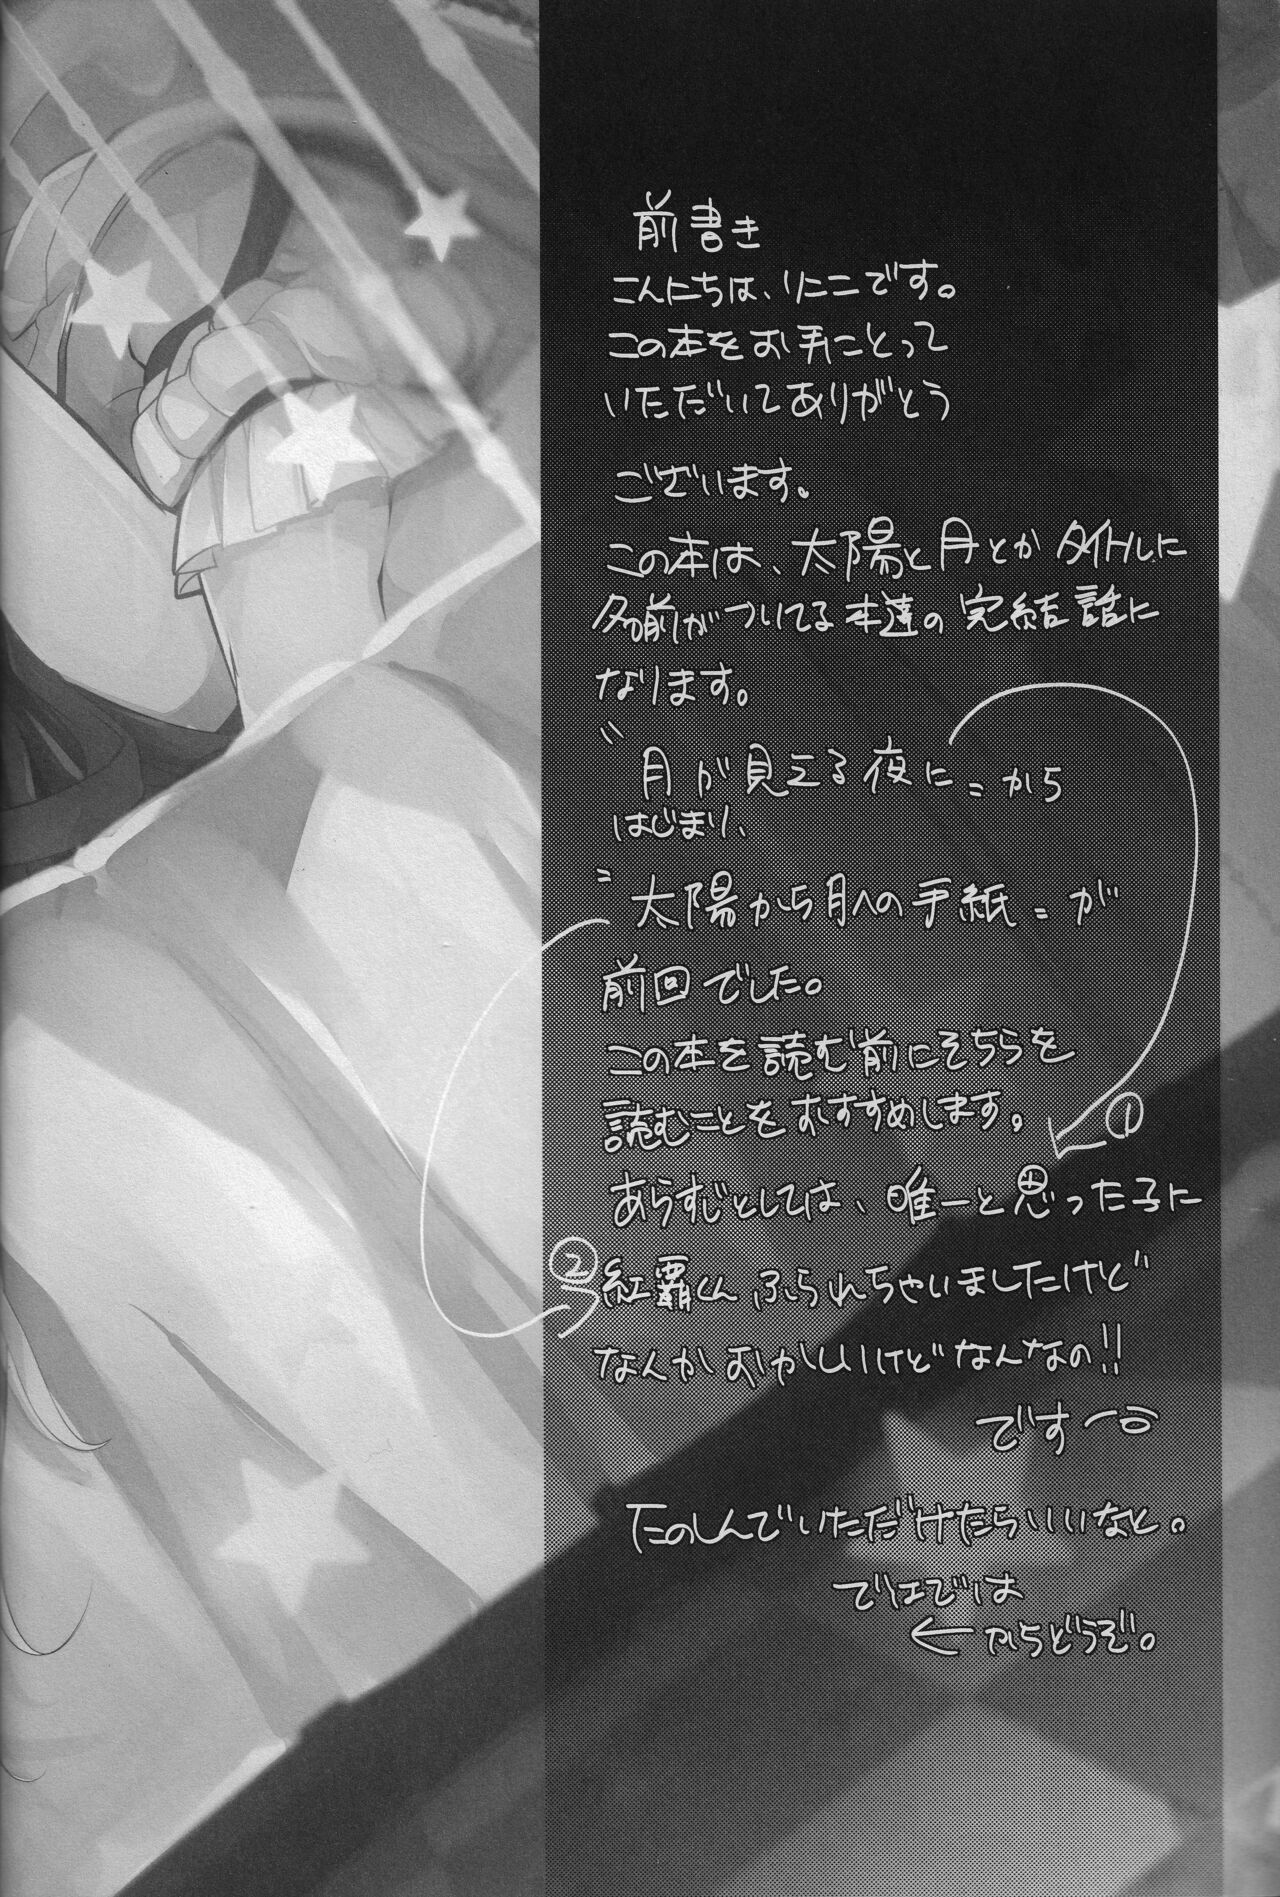 前書き
こんにちは、りにこです。
この本をお手にとって
いただいてありがとう
ございます。
この本は、太陽と月とかタイトルに
名前がついてる本達の完結話に
なります。
"月が見える夜に"から
はじまり、
"太陽から月への手紙"が
前回でした。
この本を読む前にそちらを
読むことをおすすめします。
①
あらすじとしては、唯一と思った子に
②
紅覇くんふられちゃいましたけど
なんかおかしいけどなんなの!!
です
たのしんでいただけたらいいなと。
ではでは
←からどうぞ。